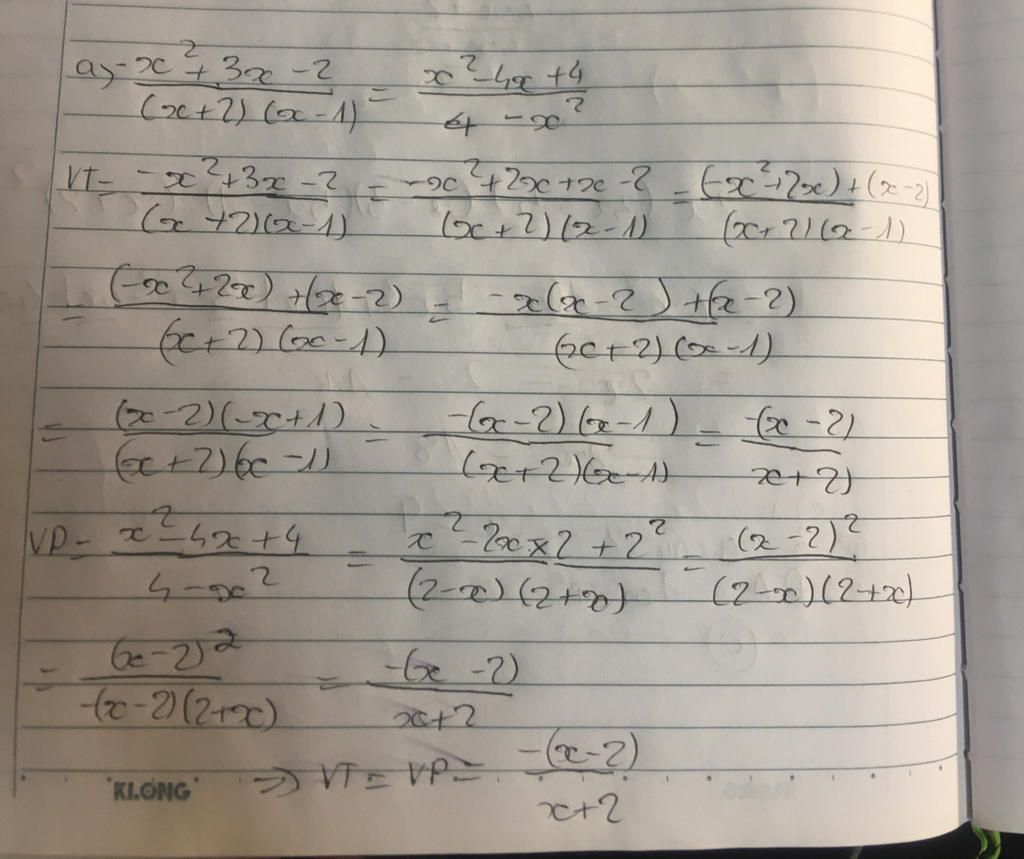 a) \frac{-x^2+3x-2}{(x+2)(x-1)} = \frac{x^2-4x+4}{4-x^2}
VT = \frac{-x^2+3x-2}{(x+2)(x-1)} = \frac{-x^2+2x+x-2}{(x+2)(x-1)} = \frac{(-x^2+2x)+(x-2)}{(x+2)(x-1)}
= \frac{(-x^2+2x)+(x-2)}{(x+2)(x-1)} = \frac{-x(x-2)+(x-2)}{(x+2)(x-1)}
= \frac{(x-2)(-x+1)}{(x+2)(x-1)} = \frac{-(x-2)(x-1)}{(x+2)(x-1)} = \frac{-(x-2)}{x+2)}
VP = \frac{x^2-4x+4}{4-x^2} = \frac{x^2-2x×2+2^2}{(2-x)(2+x)} = \frac{(x-2)^2}{(2-x)(2+x)}
= \frac{(x-2)^2}{-(x-2)(2+x)} = \frac{-(x-2)}{x+2}
=> VT = VP = \frac{-(x-2)}{x+2}
KLONG